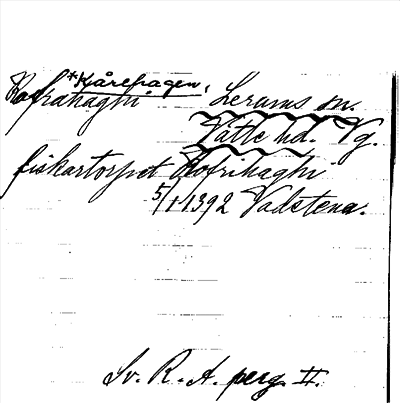 *Kårehagen,
Kofrahaghi Lerums sn.
Vätte hd. Vg.
fiskartorpet Kofrihaghi
5/1 1392 Vadstena.
Sv. R. A. perg. II.